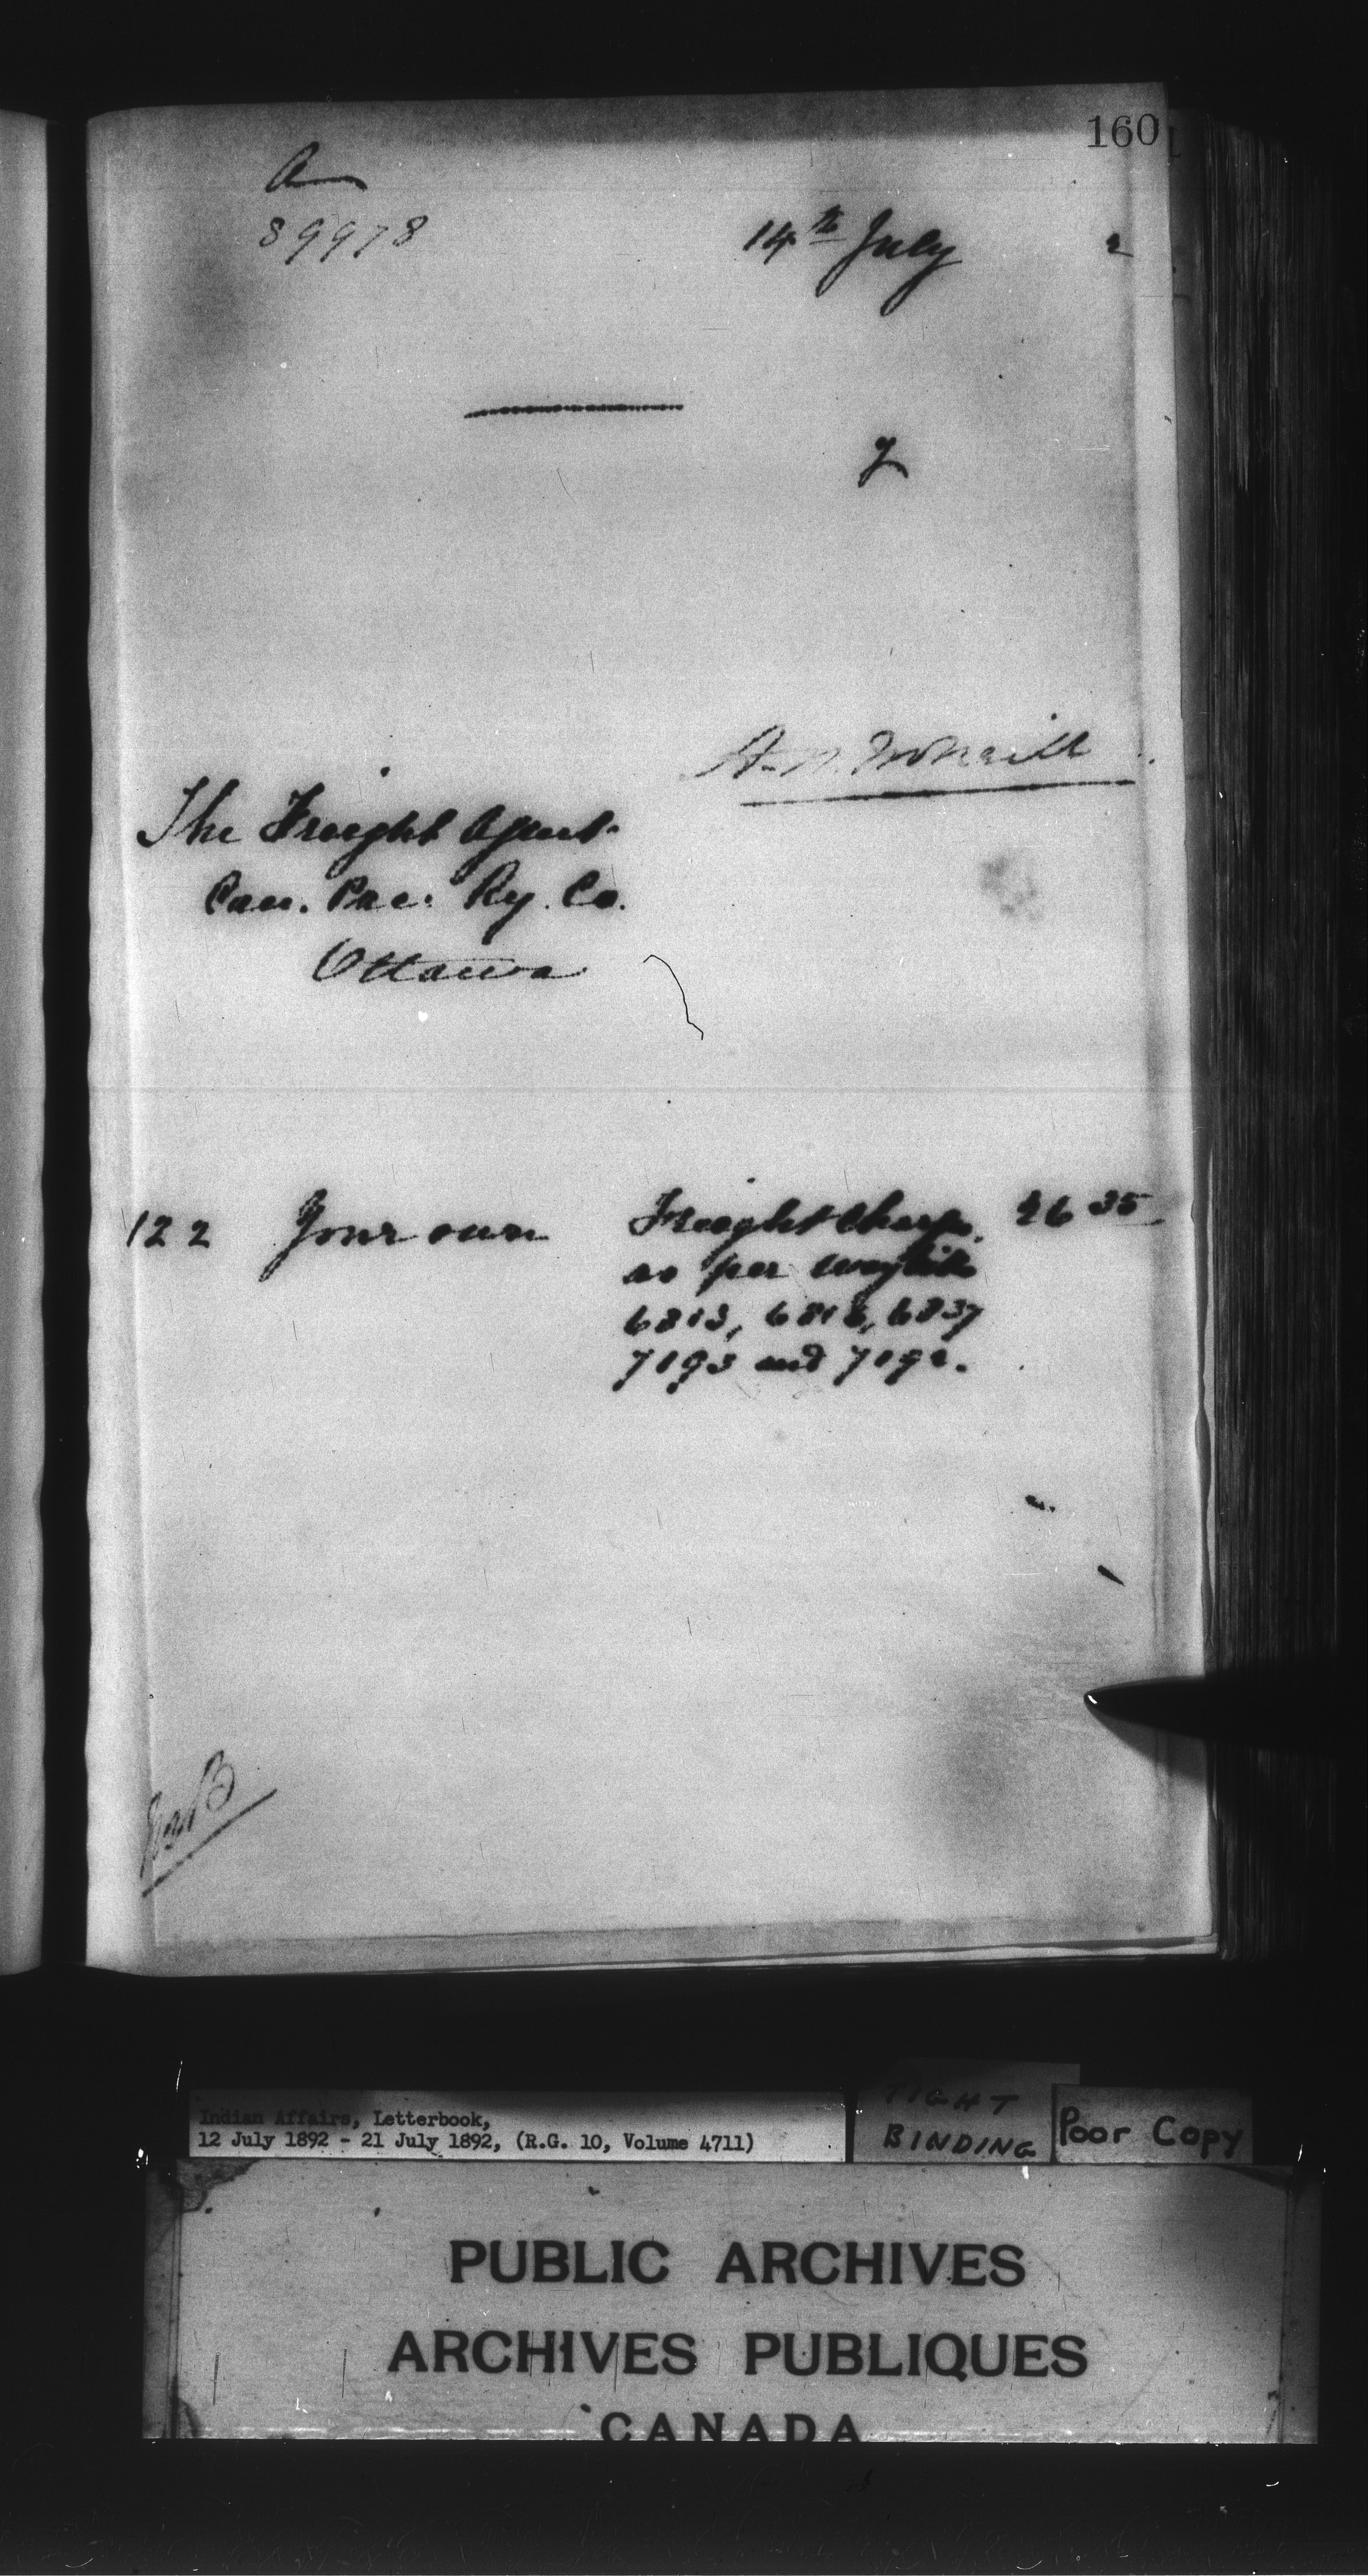 160
A
89978
14th July 2
y
A. N. McNeill
The Freight Agent
Can. Pac. Ry. Co.
Ottawa
122 Your own Freight charges 26 35
as per waybills
6813, 6818, 6837
7193 and 7192.
Indian Affairs, Letterbook,
12 July 1892 - 21 July 1892, (R.G. 10, Volume 4711)
TIGHT
BINDING
Poor Copy
PUBLIC ARCHIVES
ARCHIVES PUBLIQUES
CANADA